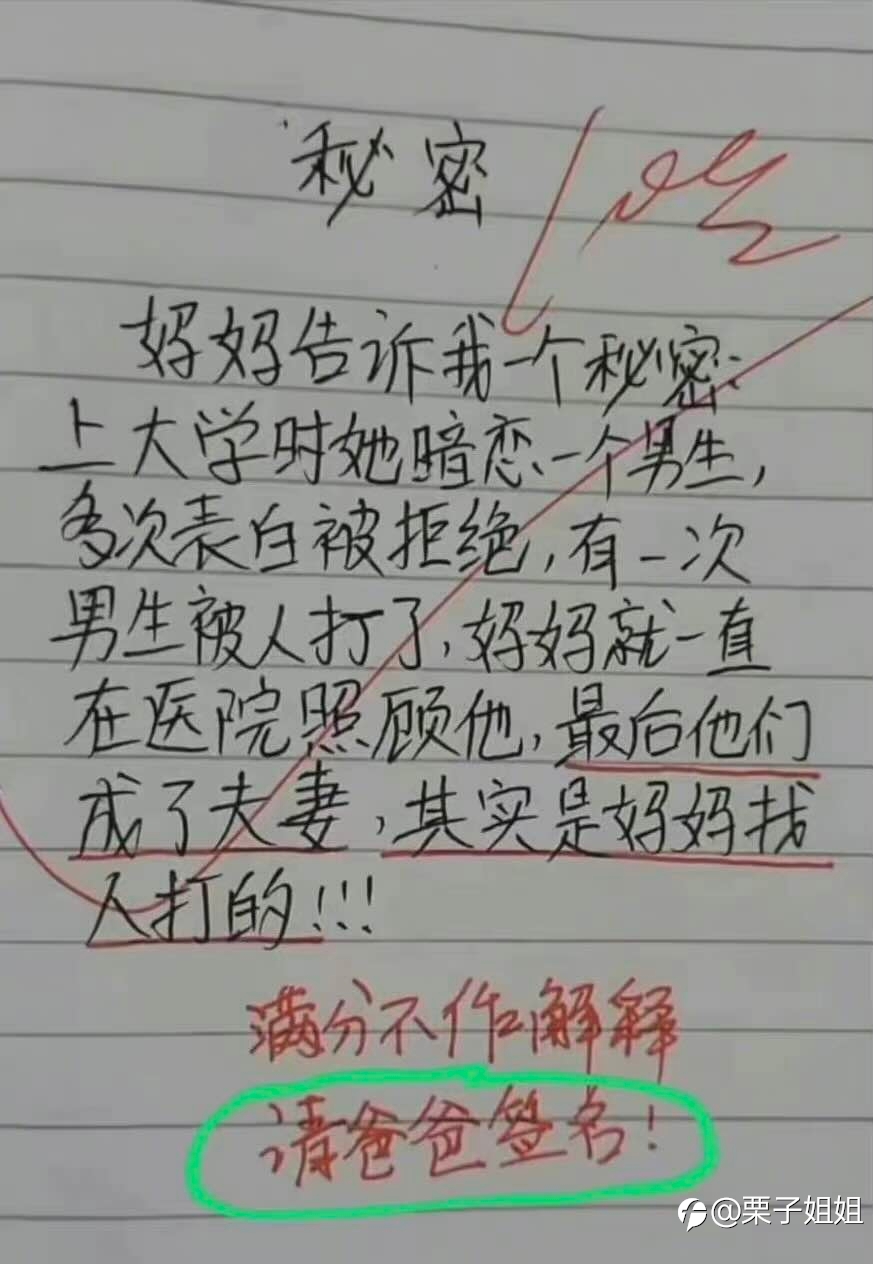 秘密
妈妈告诉我一个秘密:
上大学时她暗恋一个男生,
多次表白被拒绝,有一次
男生被人打了,妈妈就一直
在医院照顾他,最后他们
成了夫妻,其实是妈妈找
人打的!!!
满分不作解释
请爸爸签名!
@栗子姐姐